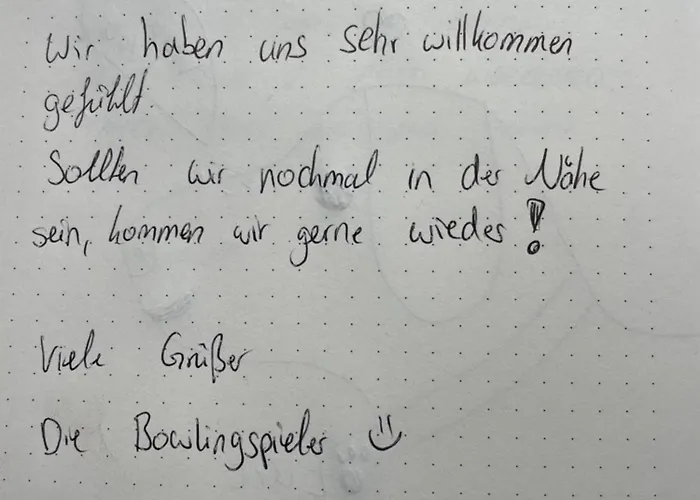 Wir haben uns sehr willkommen
gefühlt.
Sollten wir nochmal in der Nähe
sein, kommen wir gerne wieder!
Viele Grüße
Die Bowlingspieler ☺